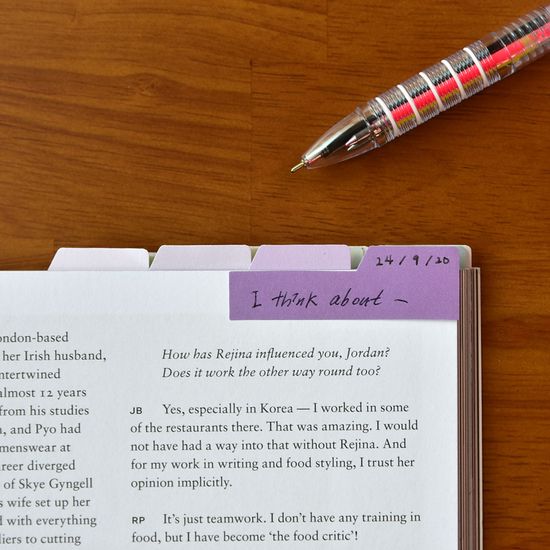 24/9/20
I think about —
ondon-based
her Irish husband,
ntertwined
almost 12 years
from his studies
, and Pyo had
menswear at
reer diverged
of Skye Gyngell
s wife set up her
d with everything
liers to cutting
How has Rejina influenced you, Jordan?
Does it work the other way round too?
JB Yes, especially in Korea — I worked in some
of the restaurants there. That was amazing. I would
not have had a way into that without Rejina. And
for my work in writing and food styling, I trust her
opinion implicitly.
RP It's just teamwork. I don't have any training in
food, but I have become 'the food critic'!